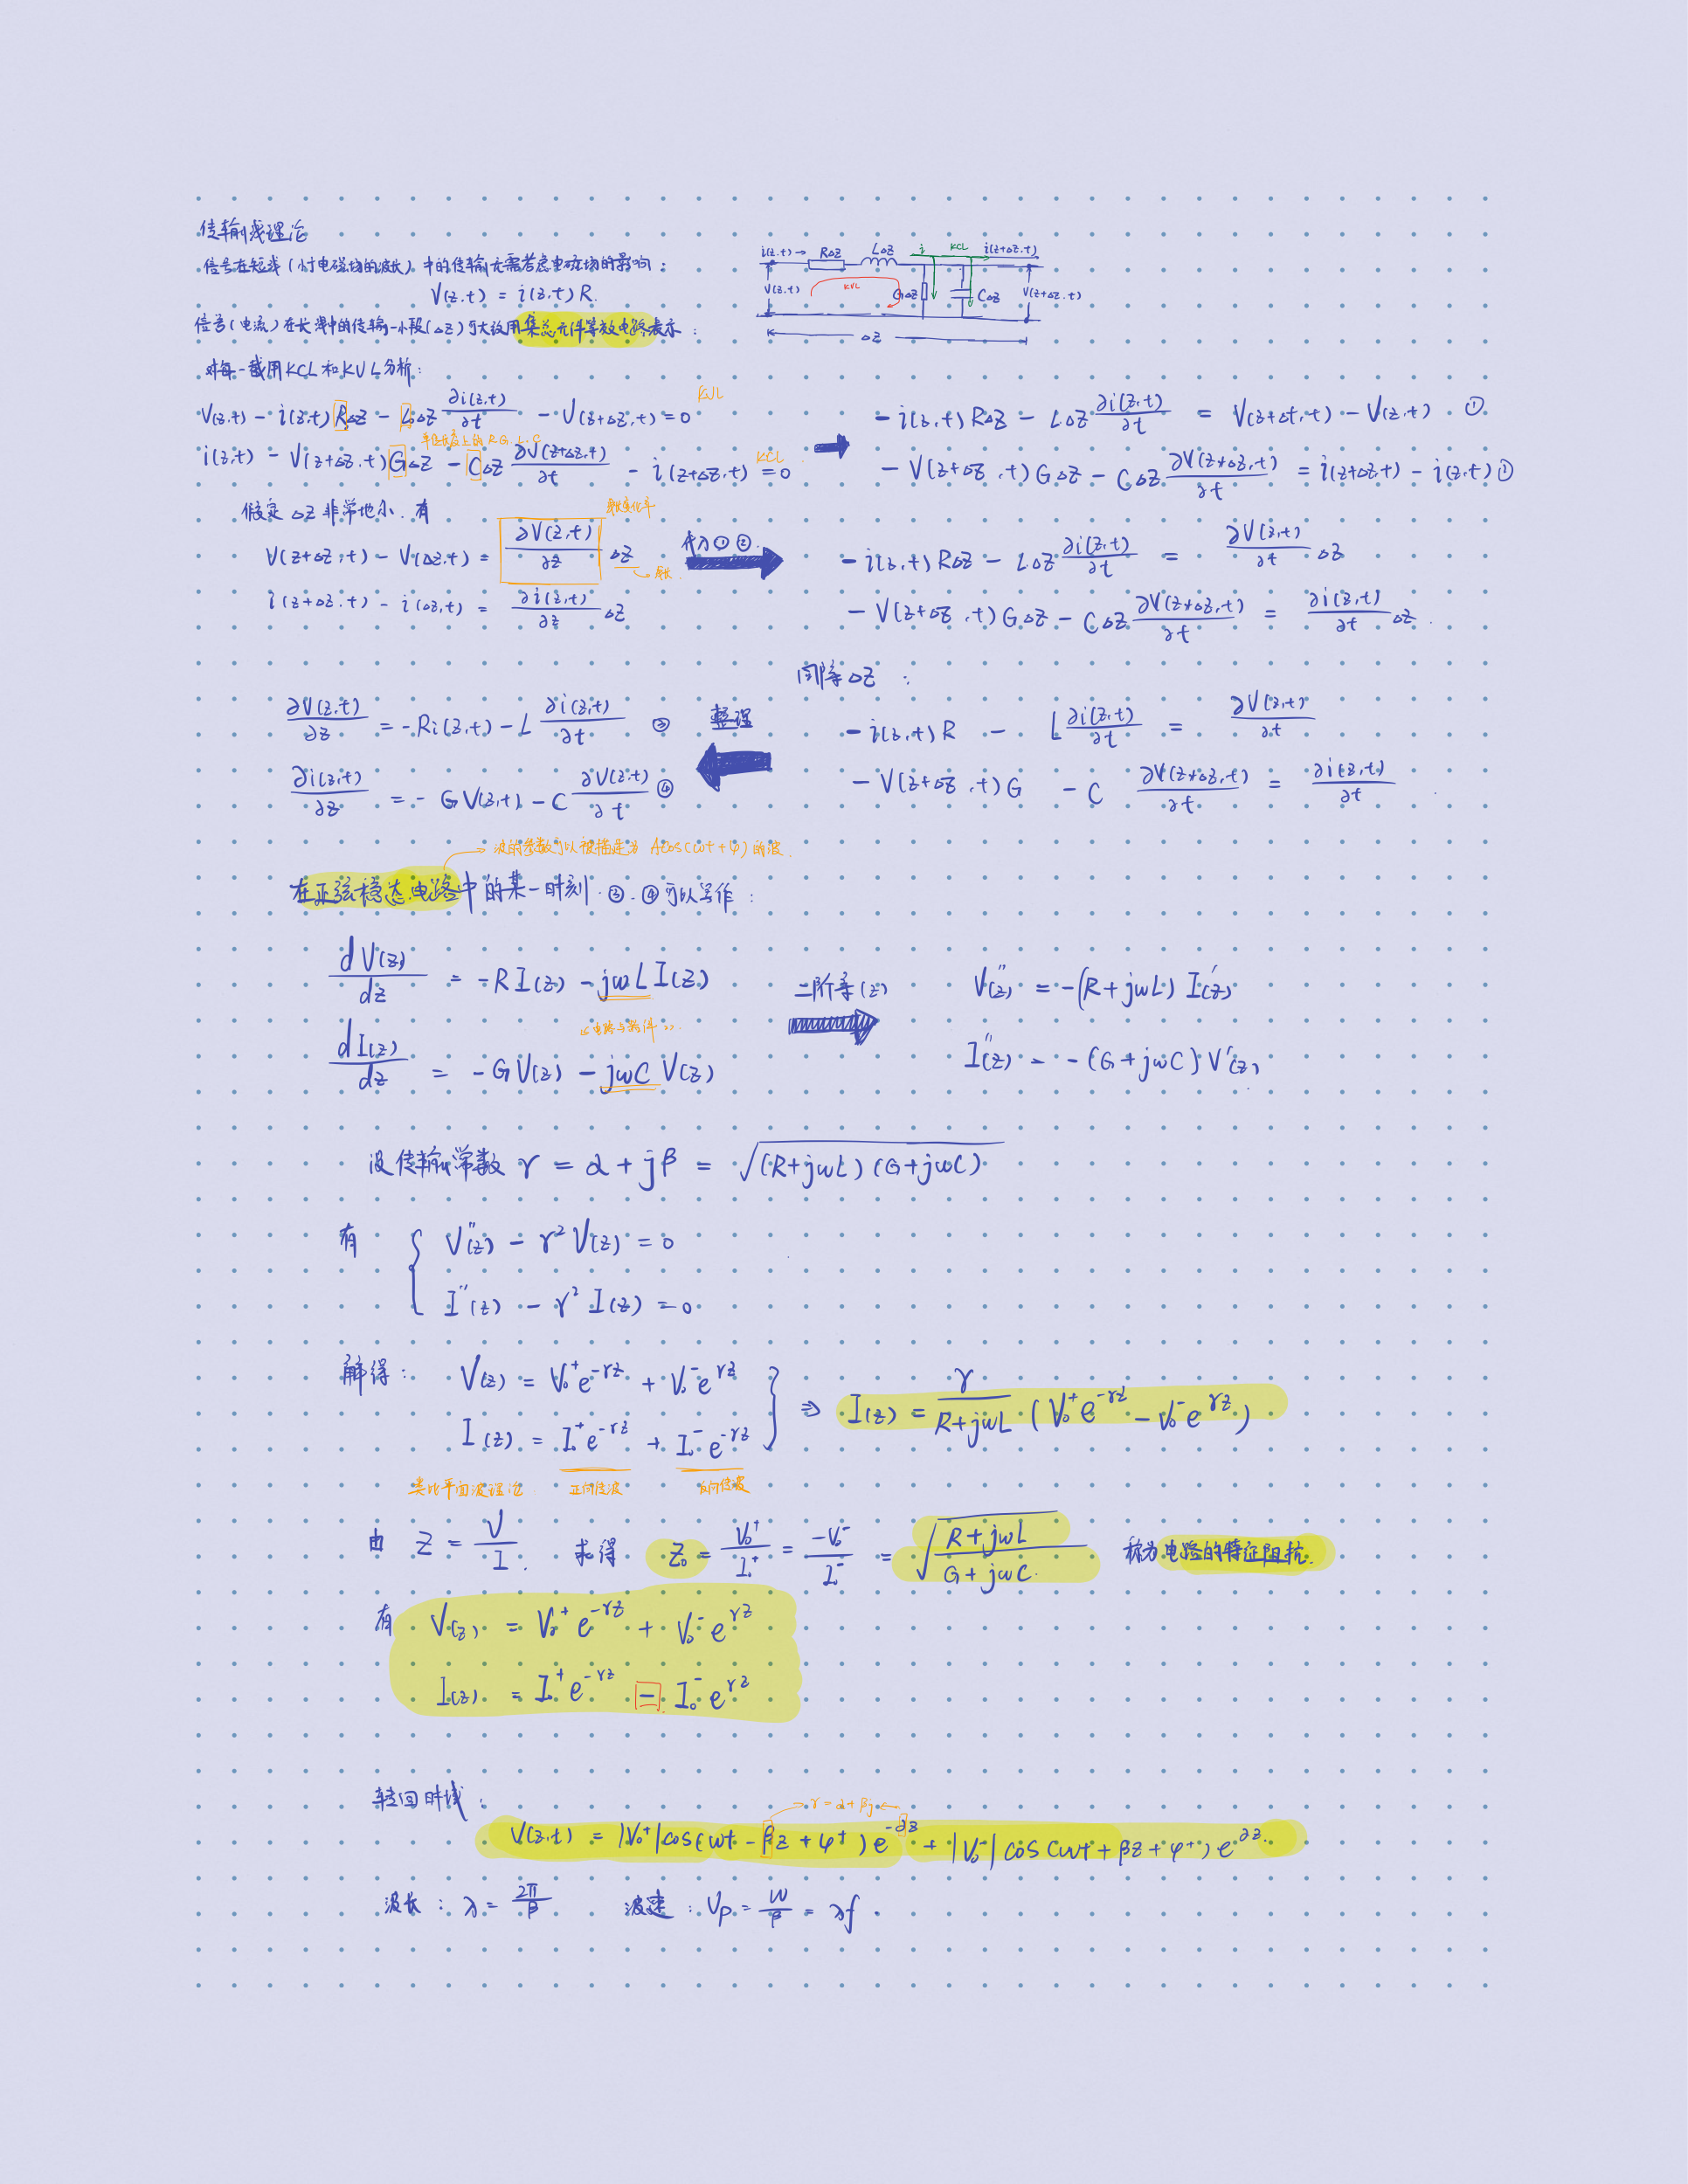 传输线理论
信号在短线(小于电磁场的波长)中的传输无需考虑电磁场的影响:
V(z,t) = i(z,t) R.
信号(电流)在长线中的传输一小段(Δz)可大致用集总元件等效电路表示:
i(z,t) → RΔz LΔz i KCL i(z+Δz,t)
V(z,t) KVL GΔz CΔz V(z+Δz,t)
Δz
对每一截用KCL和KVL分析:
V(z,t) − i(z,t) RΔz − LΔz ∂i(z,t)/∂t − V(z+Δz,t) = 0 KVL
单位长度上的 R G L C
i(z,t) − V(z+Δz,t) GΔz − CΔz ∂V(z+Δz,t)/∂t − i(z+Δz,t) = 0 KCL
− i(z,t) RΔz − LΔz ∂i(z,t)/∂t = V(z+Δt,t) − V(z,t) ①
− V(z+Δz,t) GΔz − CΔz ∂V(z+Δz,t)/∂t = i(z+Δz,t) − i(z,t) ①
假定 Δz 非常地小, 有
V(z+Δz,t) − V(Δz,t) = ∂V(z,t)/∂z Δz
i(z+Δz,t) − i(Δz,t) = ∂i(z,t)/∂z Δz
代入①②.
− i(z,t) RΔz − LΔz ∂i(z,t)/∂t = ∂V(z,t)/∂t Δz
− V(z+Δz,t) GΔz − CΔz ∂V(z+Δz,t)/∂t = ∂i(z,t)/∂t Δz.
同除 Δz :
− i(z,t) R − L ∂i(z,t)/∂t = ∂V(z,t)/∂t
− V(z+Δz,t) G − C ∂V(z+Δz,t)/∂t = ∂i(z,t)/∂t
整理
∂V(z,t)/∂z = − Ri(z,t) − L ∂i(z,t)/∂t ③
∂i(z,t)/∂z = − GV(z,t) − C ∂V(z,t)/∂t ④
→ 波的参数可以被描述为 Acos(ωt+φ) 的波.
在正弦稳态电路中的某一时刻. ③.④可以写作:
dV(z)/dz = −R I(z) − jωL I(z)
dI(z)/dz = − G V(z) − jωC V(z)
二阶导(z)
V''(z) = −(R+jωL) I'(z)
I''(z) = −(G+jωC) V'(z)
波传输常数 γ = α + jβ = √(R+jωL)(G+jωC)
有 { V''(z) − γ² V(z) = 0
I''(z) − γ² I(z) = 0
解得: V(z) = V₀⁺e^−γz + V₀⁻e^γz
I(z) = I₀⁺e^−γz + I₀⁻e^−γz
⇒ I(z) = γ/(R+jωL) (V₀⁺e^−γz − V₀⁻e^γz)
类比平面波理论 正向传波 反向传波
由 Z = V/I. 求得 Z₀ = V₀⁺/I₀⁺ = −V₀⁻/I₀⁻ = √(R+jωL)/(G+jωC) 称为电路的特征阻抗.
有 V(z) = V₀⁺e^−γz + V₀⁻e^γz
I(z) = I₀⁺e^−γz − I₀⁻e^γz
转回时域:
γ = α + βj
V(z,t) = |V₀⁺|cos(ωt − βz + φ⁺)e^−αz + |V₀⁻|cos(ωt + βz + φ⁺)e^αz.
波长: λ = 2π/β 波速: Vp = ω/β = λf.